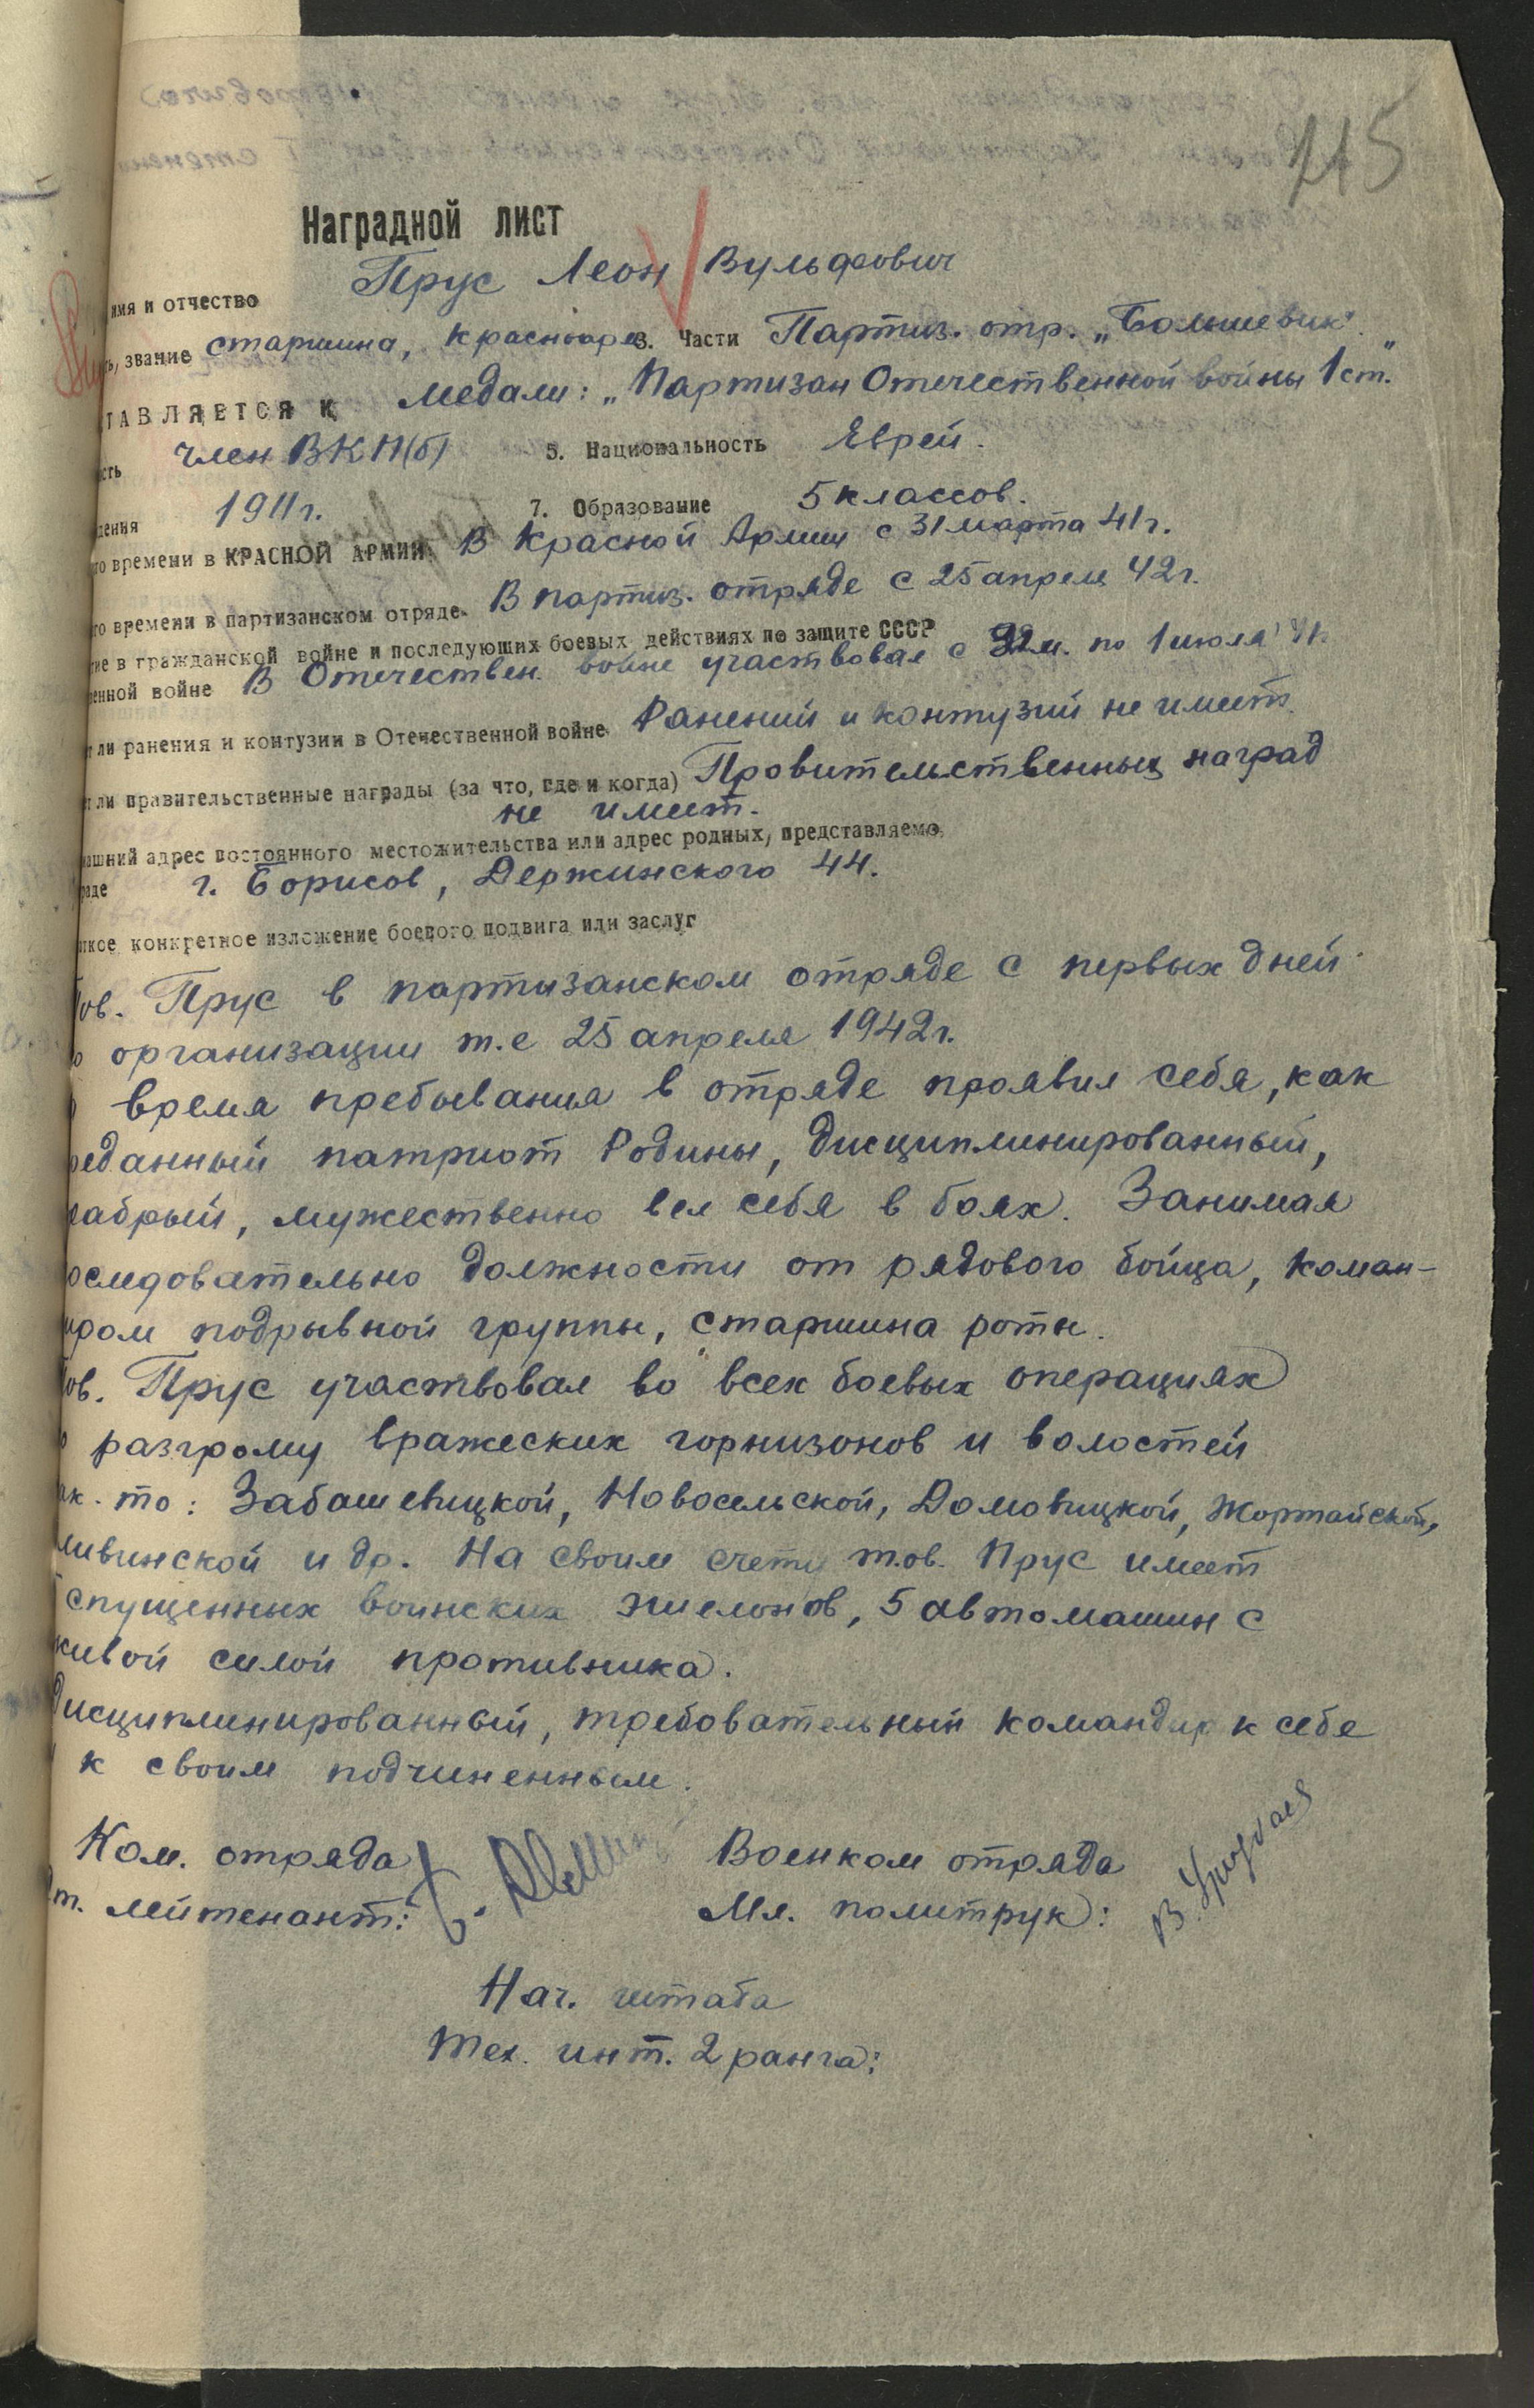 715
Наградной лист
Прус Леон Вульфович
имя и отчество
звание старшина, красноарм. 3. Части Партиз. отр. „Большевик".
ТАВЛЯЕТСЯ К медали: „Партизан Отечественной войны 1 ст."
сть член ВКП(б) 5. Национальность Еврей.
дения 1911 г. 7. Образование 5 классов.
го времени в КРАСНОЙ АРМИИ В Красной Армии с 31 марта 41 г.
го времени в партизанском отряде. В партиз. отряде с 25 апреля 42 г.
ие в гражданской войне и последующих боевых действиях по защите СССР
венной войне В Отечествен. войне участвовал с по 1 июля
ли ранения и контузии в Отечественной войне Ранений и контузий не имеет.
ли правительственные награды (за что, где и когда) Провительственных наград
не имеет.
машний адрес постоянного местожительства или адрес родных, представляемо
раде г. Борисов, Держинского 44.
ткое конкретное изложение боевого подвига или заслуг
ов. Прус в партизанском отряде с первых дней
о организации т.е 25 апреля 1942 г.
время пребывания в отряде проявил себя, как
реданный патриот Родины, дисциплинированный,
рабрый, мужественно вел себя в боях. Занимая
оследовательно должности от рядового бойца, коман-
иром подрывной группы, старшина роты.
ов. Прус участвовал во всех боевых операциях
о разгрому вражеских горнизонов и волостей
ак-то: Забашевицкой, Новосельской, Домовицкой, Жортайской,
ливинской и др. На своим счету тов. Прус имеет
спущенных воинских эшелонов, 5 автомашин с
живой силой противника.
дисциплинированный, требовательный командир к себе
и к своим подчиненным.
Ком. отряда Военком отряда
ст. лейтенант: Мл. политрук:
Нач. штаба
Тех. инт. 2 ранга: